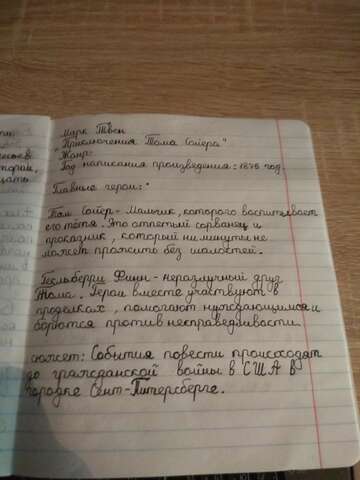 Марк Твен
"Приключения Тома Сойера"
Жанр:
Год написания произведения: 1876 год.
Главные герои:
Том Сойер - Мальчик, которого воспитывает
его тётя. Это отпетый сорванец и
проказник, который ни минуты не
может прожить без шалостей.
Гекльберри Финн - неразлучный друг
Тома. Герои вместе участвуют в
проделках, помогают нуждающимся и
борются против несправедливости.
сюжет: События повести происходят
до гражданской войны в США в
городке Сент-Питерсберге.